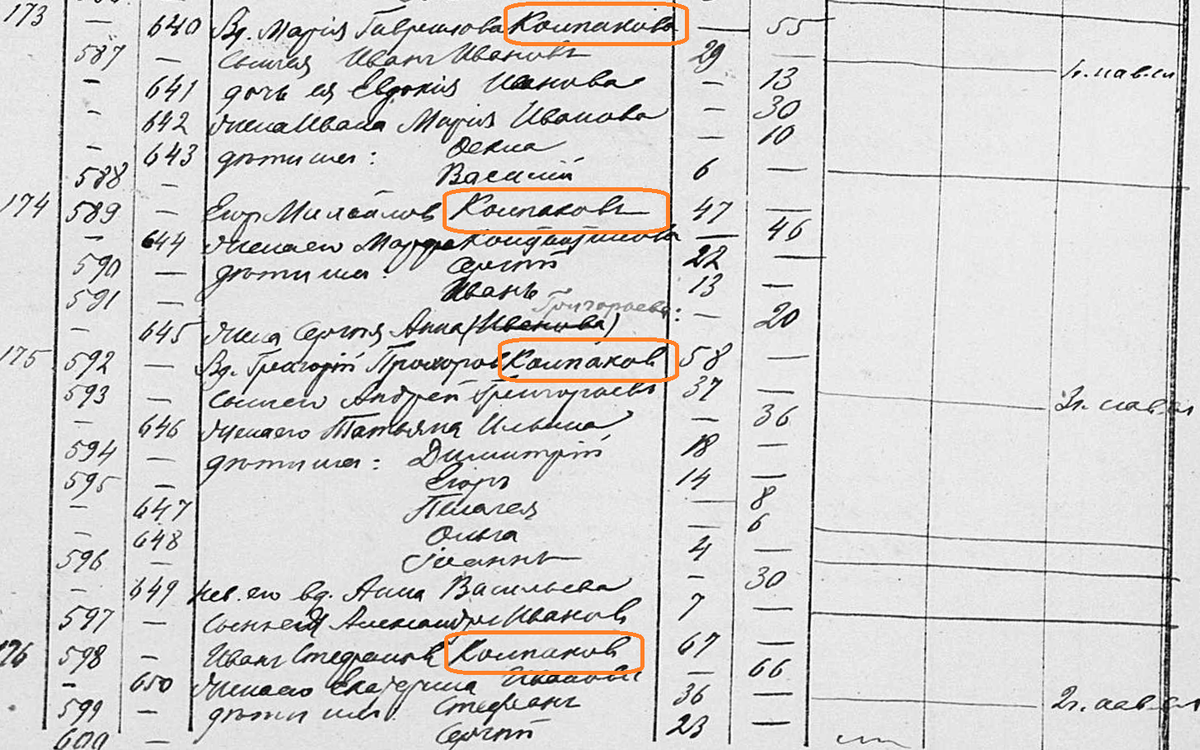 173 640 Вд. Марія Гаврилова Колпакова — 55
587 — сынъ ея Иванъ Ивановъ 29 —
— 641 дочь ея Евдокія Иванова — 13
— 642 жена Ивана Марія Иванова — 30
— 643 дѣти ихъ: — 10
588 — Василій 6 —
174 589 — Егоръ Михайловъ Колпаковъ 47 —
— 644 жена его Марфа — 46
590 — дѣти ихъ: Сергій 22 —
591 — Иванъ 13 —
Григорьева:
— 645 жена Сергія Анна (Иванова) — 20
175 592 — Вд. Григорій Прохоров Колпаков 58 —
593 — сынъ его Андрей Григорьевъ 37 —
— 646 жена его Татьяна Ильина — 36
594 — дѣти ихъ: Димитрій 18 —
595 — Егоръ 14 —
— 647 Пелагея — 8
— 648 Ольга — 6
596 — Іоаннъ 4 —
— 649 нев. его вд. Анна Васильева — 30
597 — сынъ ея Александръ Иванов 7 —
176 598 — Иванъ Стефановъ Колпаков 67 —
— 650 жена его Екатерина Иванова — 66
599 — дѣти ихъ: Стефанъ 36 —
600 — Сергій 23 —